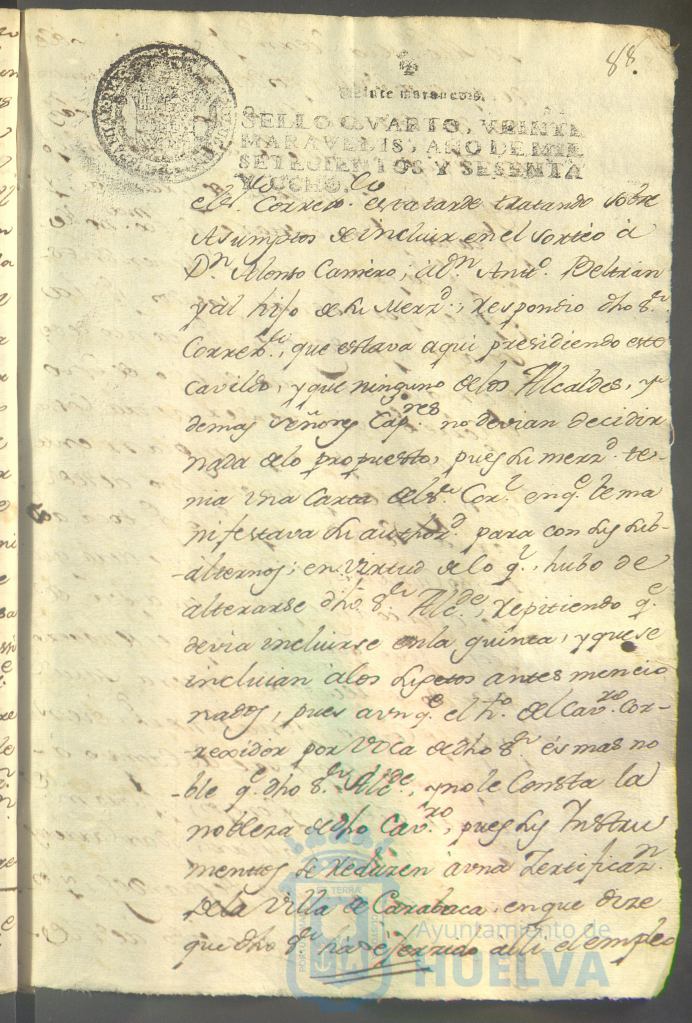 88.
Veinte maravedis.
SELLO QVARTO, VEINTE
MARAVEDIS, AÑO DE MIL
SETECIENTOS Y SESENTA
Y OCHO.
el Sr. Correxor. esta tarde tratando sobre
Asumptos de incluir en el sorteo á
Dn. Alonso Camero, á Dn. Anto. Beltran
y al hijo de su Merzd., respondio dho Sr.
Correxor., que estava aqui presidiendo este
Cavildo, y que ninguno de los Alcaldes, y
demas Señores Capres. no devian decidir
nada de lo propuesto, pues su merzd. te-
nia una Carta del Sr. Cor. en qe. le ma
nifestava su authord. para con sus sub-
-alternos; en virtud de lo qe. hubo de
alterarse dho. Sr. Alcde., repitiendo qe.
devia incluirse en la quinta, y que se
incluian á los sugetos antes mencio
nados, pues aunqe. el ho. del Cavro. Cor-
-rexidor por voca de dho Sr. és mas no
-ble qe. dho Sr. Alcde., y no le Consta la
nobleza de dho Cavro., pues sus Instru
mentos se reduzen á una Zertificazn.
de la Villa de Carabaca, en que dize
que dho Sr. há ejerzido alli el empleo
Ayuntamiento de
HUELVA